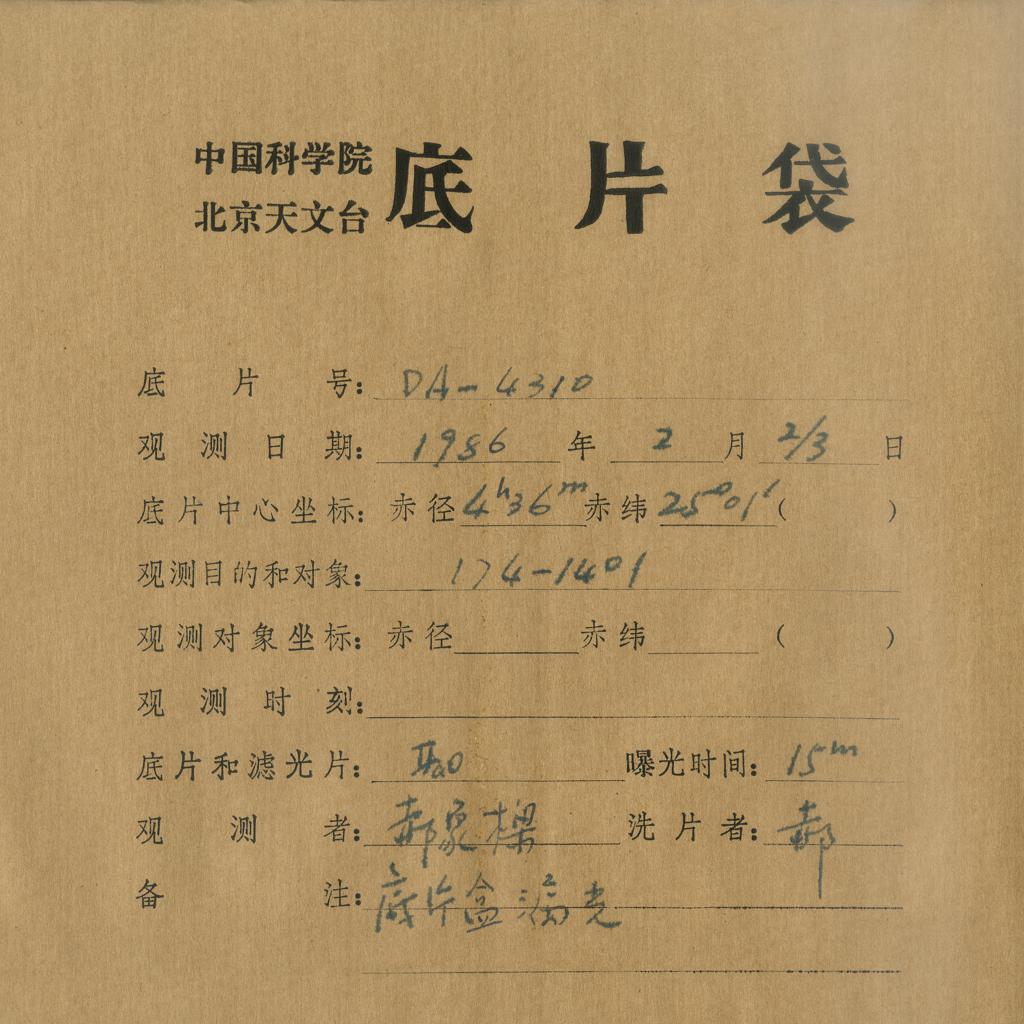 中国科学院
北京天文台
底片袋
底片号: DA-4310
观测日期: 1986年2月2/3日
底片中心坐标: 赤径4h36m赤纬25°01′( )
观测目的和对象: 174-1401
观测对象坐标: 赤径 赤纬 ( )
观测时刻:
底片和滤光片: IIaO 曝光时间: 15m
观测者: 郝象樑 洗片者: 郝
备注: 底片盒漏光